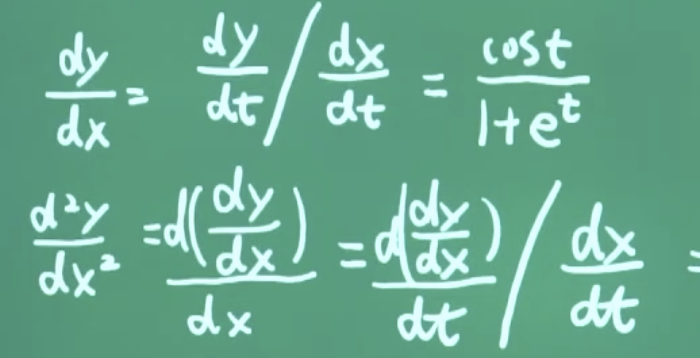 dy/dx = dy/dt / dx/dt = cost/1+e^t
d²y/dx² = d(dy/dx)/dx = d(dy/dx)/dt / dx/dt =